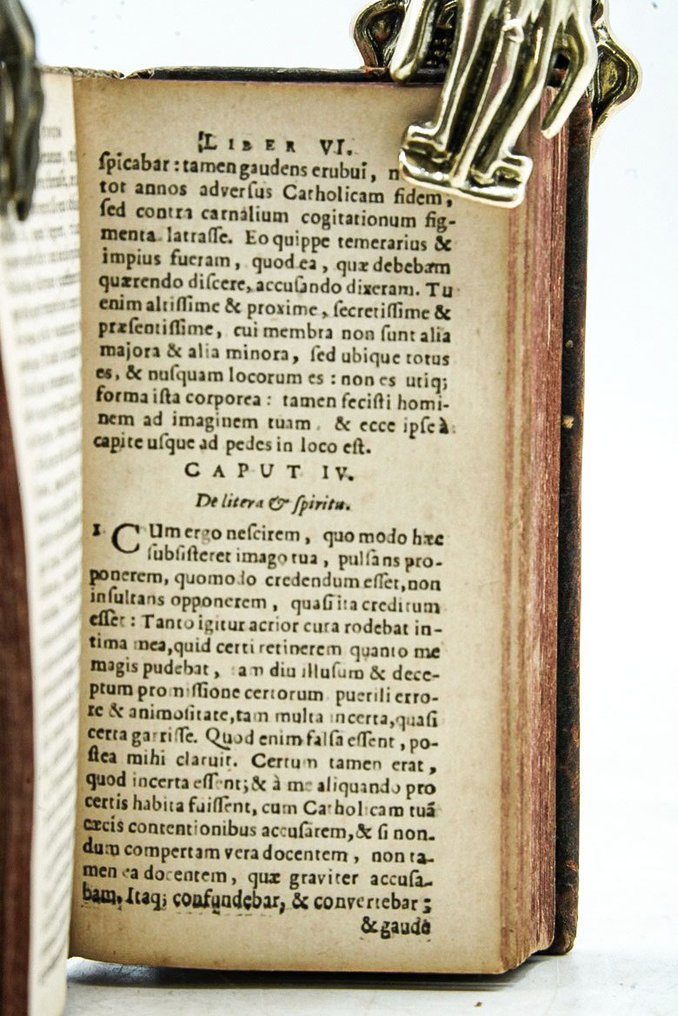 LIBER VI.
ſpicabar : tamen gaudens erubui, n
tot annos adverſus Catholicam fidem,
ſed contra carnalium cogitationum fig-
menta latraſſe. Eo quippe temerarius &
impius fueram, quod ea, quæ debebam
quærendo diſcere, accuſando dixeram. Tu
enim altiſſime & proxime, ſecretiſſime &
præſentiſſime, cui membra non ſunt alia
majora & alia minora, ſed ubique totus
es, & nuſquam locorum es : non es utiq;
forma iſta corporea : tamen feciſti homi-
nem ad imaginem tuam, & ecce ipſe à
capite uſque ad pedes in loco eſt.
CAPUT IV.
De litera & ſpiritu.
1 CUm ergo neſcirem, quo modo hæc
ſubſiſteret imago tua, pulſans pro-
ponerem, quomodo credendum eſſet, non
inſultans opponerem, quaſi ita creditum
eſſet : Tanto igitur acrior cura rodebat in-
tima mea, quid certi retinerem quanto me
magis pudebat, tam diu illuſum & dece-
ptum promiſſione certorum puerili erro-
re & animoſitate, tam multa incerta, quaſi
certa garriſſe. Quod enim falſa eſſent, po-
ſtea mihi claruit. Certum tamen erat,
quod incerta eſſent; & à me aliquando pro
certis habita fuiſſent, cum Catholicam tuā
cæcis contentionibus accuſarem, & ſi non-
dum compertam vera docentem, non ta-
men ea docentem, quæ graviter accuſa-
bam. Itaq; confundebar, & convertebar ;
& gaude